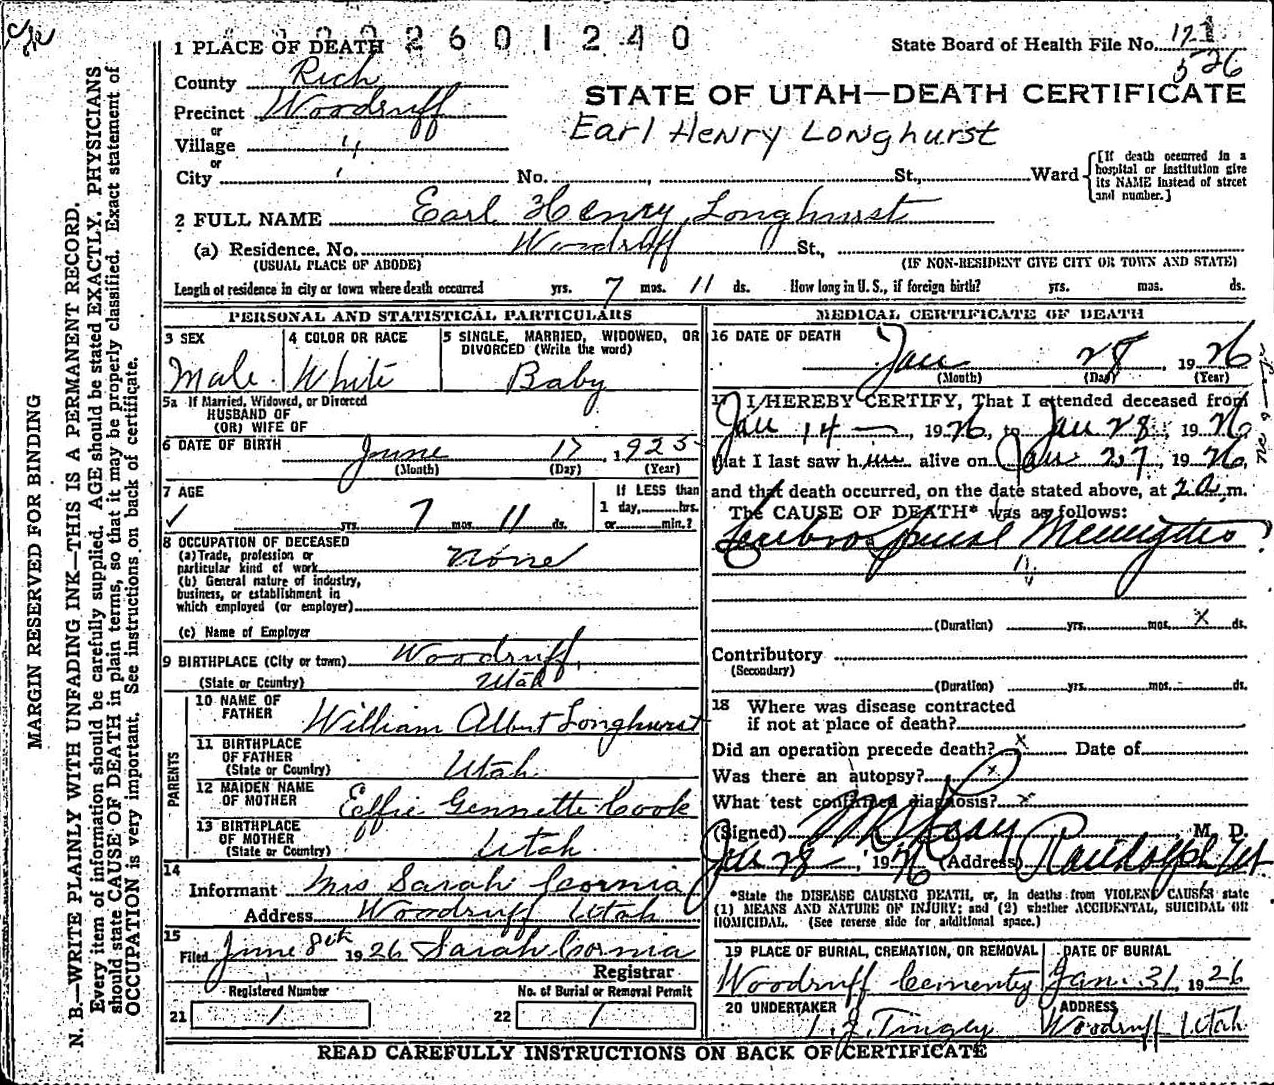 2601240
State Board of Health File No. 121
526
1 PLACE OF DEATH
County Rich
STATE OF UTAH—DEATH CERTIFICATE
Precinct Woodruff
Earl Henry Longhurst
or
Village "
or
City ' No. , St., Ward
[If death occurred in a
hospital or institution give
its NAME instead of street
and number.]
2 FULL NAME Earl Henry Longhurst
(a) Residence. No. Woodruff St.,
(USUAL PLACE OF ABODE) (IF NON-RESIDENT GIVE CITY OR TOWN AND STATE)
Length of residence in city or town where death occurred yrs. 7 mos. 11 ds. How long in U. S., if foreign birth? yrs. mos. ds.
PERSONAL AND STATISTICAL PARTICULARS
3 SEX
Male
4 COLOR OR RACE
White
5 SINGLE, MARRIED, WIDOWED, OR
DIVORCED (Write the word)
Baby
5a If Married, Widowed, or Divorced
HUSBAND OF
(OR) WIFE OF
6 DATE OF BIRTH June 17, 1925
(Month) (Day) (Year)
7 AGE
yrs. 7 mos. 11 ds.
If LESS than
1 day, hrs.
or min.?
8 OCCUPATION OF DECEASED
(a) Trade, profession or
particular kind of work None
(b) General nature of industry,
business, or establishment in
which employed (or employer)
(c) Name of Employer
9 BIRTHPLACE (City or town) Woodruff,
(State or Country) Utah
PARENTS
10 NAME OF
FATHER William Albert Longhurst
11 BIRTHPLACE
OF FATHER
(State or Country) Utah
12 MAIDEN NAME
OF MOTHER Effie Gennette Cook
13 BIRTHPLACE
OF MOTHER
(State or Country) Utah
14
Informant Mrs Sarah Cornia
Address Woodruff Utah
15
Filed June 8th 1926 Sarah Cornia
Registrar
Registered Number
21 1
No. of Burial or Removal Permit
22 1
MEDICAL CERTIFICATE OF DEATH
16 DATE OF DEATH
Jan 28, 1926
(Month) (Day) (Year)
17 I HEREBY CERTIFY, That I attended deceased from
Jan 14, 1926, to Jan 28, 1926,
that I last saw him alive on Jan 27, 1926,
and that death occurred, on the date stated above, at 2 a. m.
The CAUSE OF DEATH* was as follows:
Cerebro Spinal Meningitis
(Duration) yrs. mos. X ds.
Contributory
(Secondary)
(Duration) yrs. mos. ds.
18 Where was disease contracted
if not at place of death?
Did an operation precede death? x Date of
Was there an autopsy? x
What test confirmed diagnosis? x
(Signed) M. D.
Jan 28, 1926 (Address) Randolph Ut
*State the DISEASE CAUSING DEATH, or, in deaths from VIOLENT CAUSES state
(1) MEANS AND NATURE OF INJURY; and (2) whether ACCIDENTAL, SUICIDAL OR
HOMICIDAL. (See reverse side for additional space.)
19 PLACE OF BURIAL, CREMATION, OR REMOVAL
Woodruff Cemetery
DATE OF BURIAL
Jan. 31, 1926
20 UNDERTAKER
Tingey
ADDRESS
Woodruff Utah
READ CAREFULLY INSTRUCTIONS ON BACK OF CERTIFICATE
MARGIN RESERVED FOR BINDING
N. B.—WRITE PLAINLY WITH UNFADING INK—THIS IS A PERMANENT RECORD.
Every item of information should be carefully supplied. AGE should be stated EXACTLY. PHYSICIANS
should state CAUSE OF DEATH in plain terms, so that it may be properly classified. Exact statement of
OCCUPATION is very important. See instructions on back of certificate.